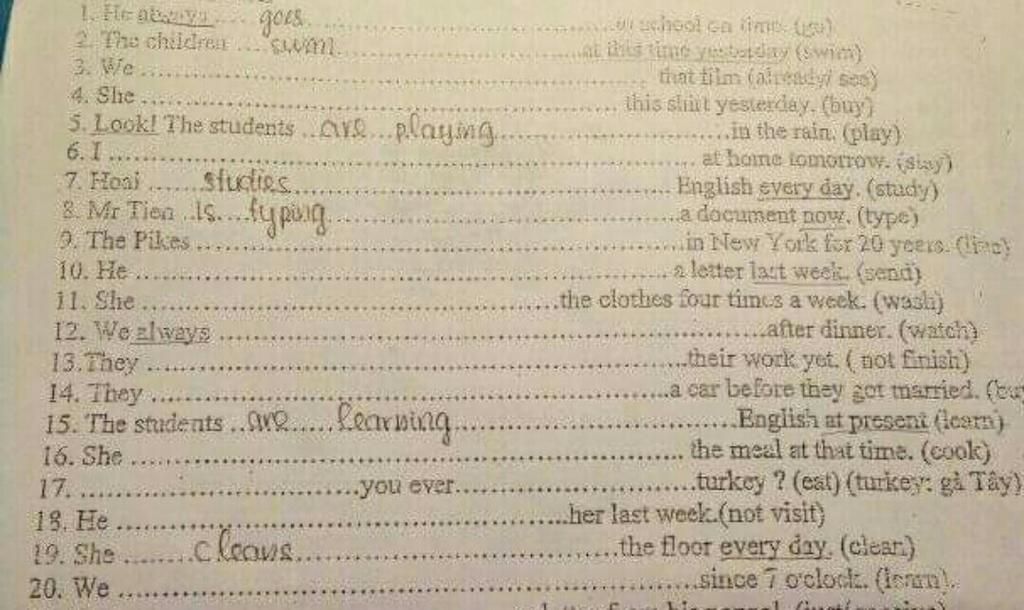 1. He always .... goes ........ to school on time. (go)
2. The children .... swim ........ at this time yesterday (swim)
3. We ........ that film (already/ see)
4. She ........ this shirt yesterday. (buy)
5. Look! The students .. are .. playing ........ in the rain. (play)
6. I ........ at home tomorrow. (stay)
7. Hoai ...... studies ........ English every day. (study)
8. Mr Tien .. is .. typing ........ a document now. (type)
9. The Pikes ........ in New York for 20 years. (live)
10. He ........ a letter last week. (send)
11. She ........ the clothes four times a week. (wash)
12. We always ........ after dinner. (watch)
13.They ........ their work yet. ( not finish)
14. They ........ a car before they got married.
15. The students .. are ..... learning ........ English at present (learn)
16. She ........ the meal at that time. (cook)
17. ........ you ever ........ turkey ? (eat) (turkey: gà Tây)
18. He ........ her last week.(not visit)
19. She ........ cleans ........ the floor every day. (clean)
20. We ........ since 7 o'clock. (learn).